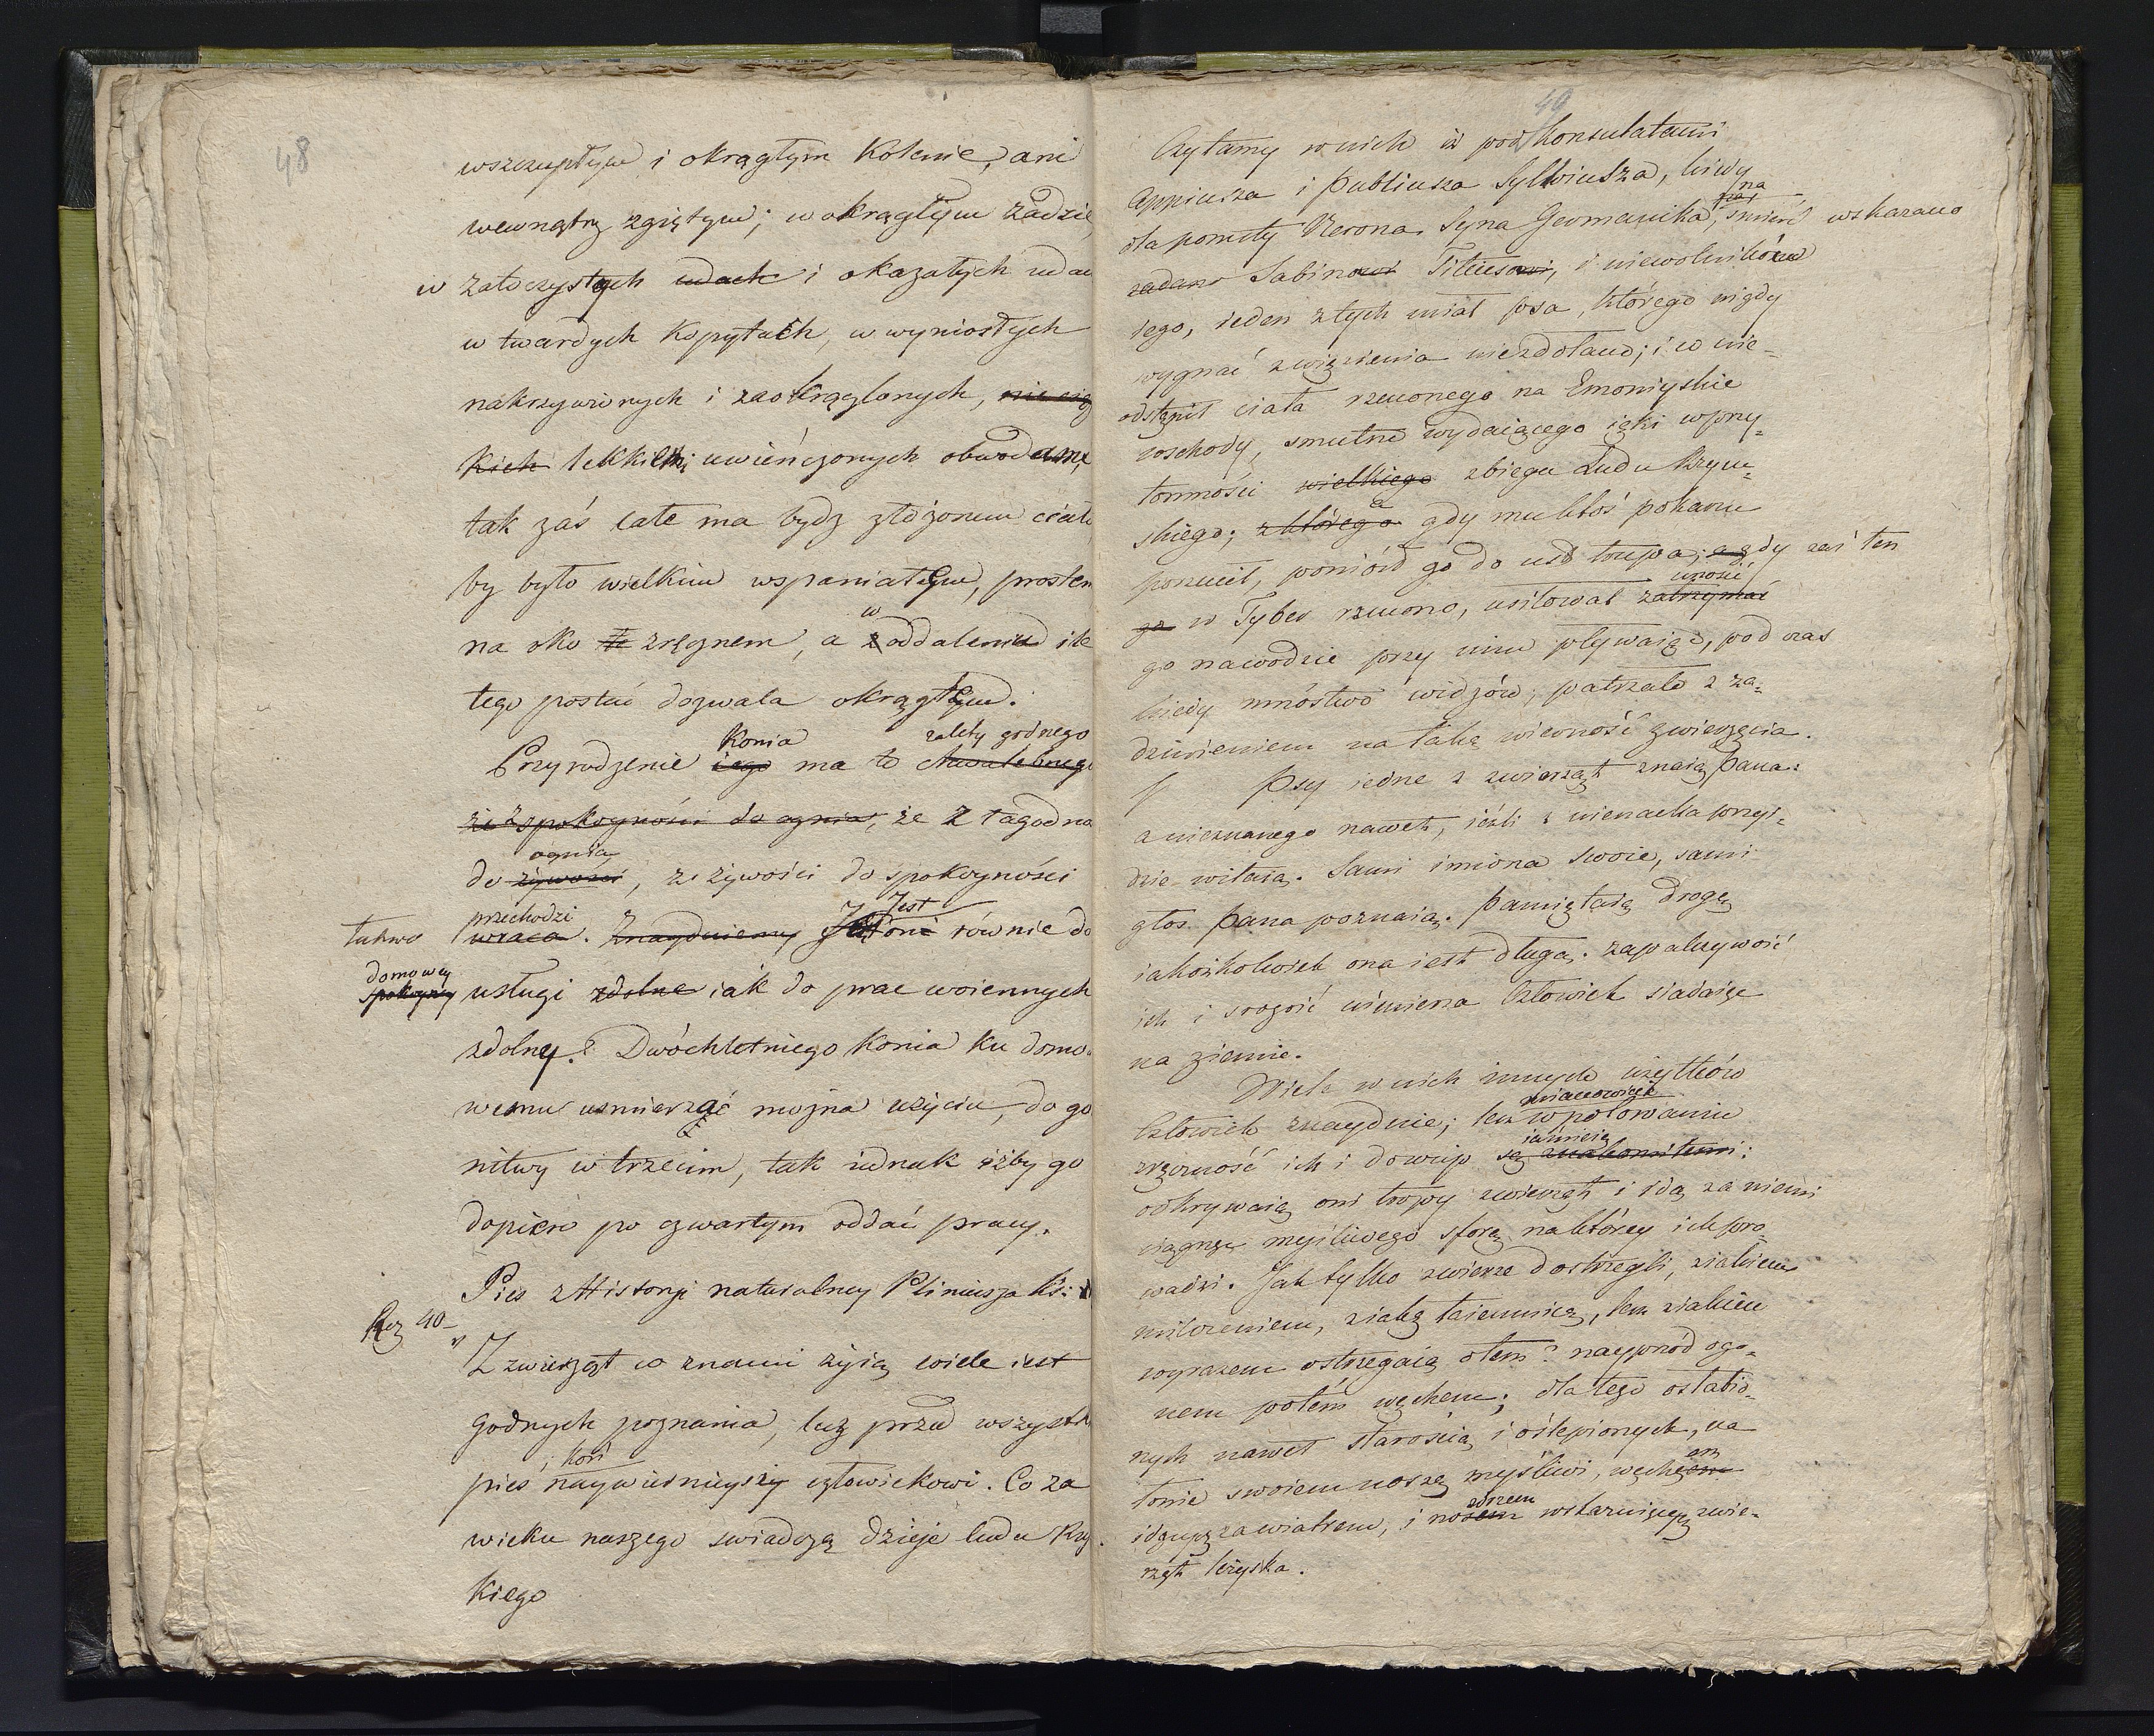 48
wszczupłym i okrągłym Kolenie, ani
wewnątrz zgiętym; w okrągłym zadzie
w zatoczystych udach i okazałych udac
w twardych Kopytach, w wyniosłych
nakrzywionych i zaokrąglonych, nie cięż
kich lekkiemi uwieńczonych obwodami,
tak zaś całe ma bydz złożonem ciało
by było wielkim wspaniałym, prostem
w
na oko te zręcznem, a z oddaleniu ile
tego postać dozwala okrągłym.
Konia zalety godnego
Przyrodzenie iego ma to chwalebnego
że z spokoyności do ognia, że z łagodno
ognia
do żywości, ze żywości do spokoyności
przechodzi Jest
łatwo wraca. Znayduiemy równie do
domowey
spokoyney usługi zdolne iak do prac woiennych
zdolny. Dwóchletniego Konia ku domo
wemu usmierzać można użyciu, do go
nitwy w trzecim, tak iednak iżby go
dopiero po czwartym oddać pracy.
Pies z Historyi naturalney Pliniusza Ks:
Roz 40
Z zwierząt co z nami żyią wiele iest
godnych poznania, lecz przed wszystk
, koń
pies naywiernieyszy człowiekowi. Co za
wieku naszego swiadczą dzieje ludu Rzy
kiego
49
Czytamy w nich iż pod Konsulatami
Appiusza i Publiusza Sylwiusza, kiedy
na
dla pomsty Nerona Syna Germanika, śmierć wskazano
zadano Sabinowi Titiusowi, i niewolników
iego, ieden z tych miał psa, którego nigdy
wygnać z więzienia niezdołano; i w nie-
odstąpił ciała rzuconego na Emoniyskie
wschody, smutne wydaiącego ięki w przy-
tomności wielkiego zbiegu Ludu Rzym-
a
skiego; z którego gdy mu ktoś pokarm
porzucił, poniósł go do ust trupa; a gdy zaś ten
unosić
go w Tyber rzucono, usiłował zatrzymać
go na wodzie przy nim pływaiąc, podczas
kiedy mnóstwo widzów, patrzało z za-
dziwieniem na taką wierność zwierzęcia.
Psy iedne z zwierząt znaią Pana:
a nieznanego nawet, ieźli z nienacka przyi-
dzie witaią. Sami imiona swoie, sami
głos Pana poznaią. Pamiętaią drogę
iakożkolwiek ona iest długą. zapalczywość
ich i srogość uśmierza Człowiek siadaiąc
na ziemie.
Wiele w nich innych użytków
mianowicie
Człowiek znayduie; lecz w polowaniu
iaśnieią
zręczność ich i dowcip są znakomitemi:
odkrywaią oni tropy zwierząt i idą za niemi
ciągnąc myśliwego sforą na którey ich pro-
wadzi. Jak tylko zwierze dostrzegli, z iakiem
milczeniem, z iaką taiemnicą, lecz z iakim
wyrazem ostrzegaią o tem? nayprzód ogo-
nem potém węchem; dla tego osłabio-
nych nawet starością i oślepionych, na
em
łonie swoiem noszą myśliwi, węchem
idących za wiatrem, i nosem wskazuiących zwie-
rząt leżyska.